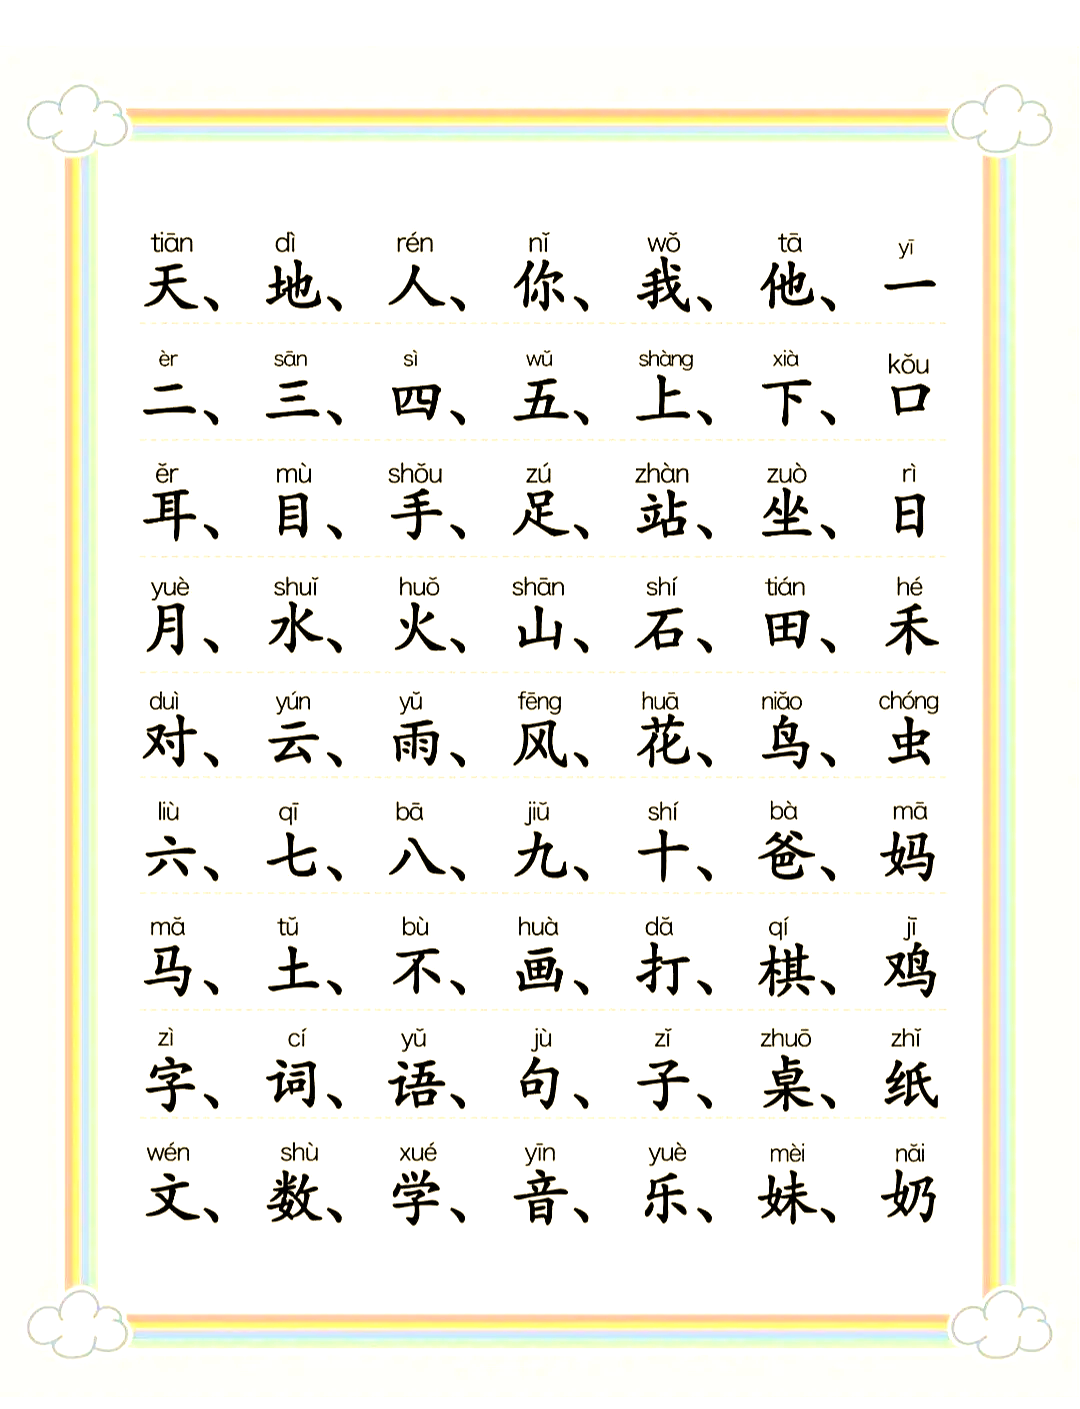 tiān dì rén nǐ wǒ tā yī
天、地、人、你、我、他、一
èr sān sì wǔ shàng xià kǒu
二、三、四、五、上、下、口
ěr mù shǒu zú zhàn zuò rì
耳、目、手、足、站、坐、日
yuè shuǐ huǒ shān shí tián hé
月、水、火、山、石、田、禾
duì yún yǔ fēng huā niǎo chóng
对、云、雨、风、花、鸟、虫
liù qī bā jiǔ shí bà mā
六、七、八、九、十、爸、妈
mǎ tǔ bù huà dǎ qí jī
马、土、不、画、打、棋、鸡
zì cí yǔ jù zǐ zhuō zhǐ
字、词、语、句、子、桌、纸
wén shù xué yīn yuè mèi nǎi
文、数、学、音、乐、妹、奶